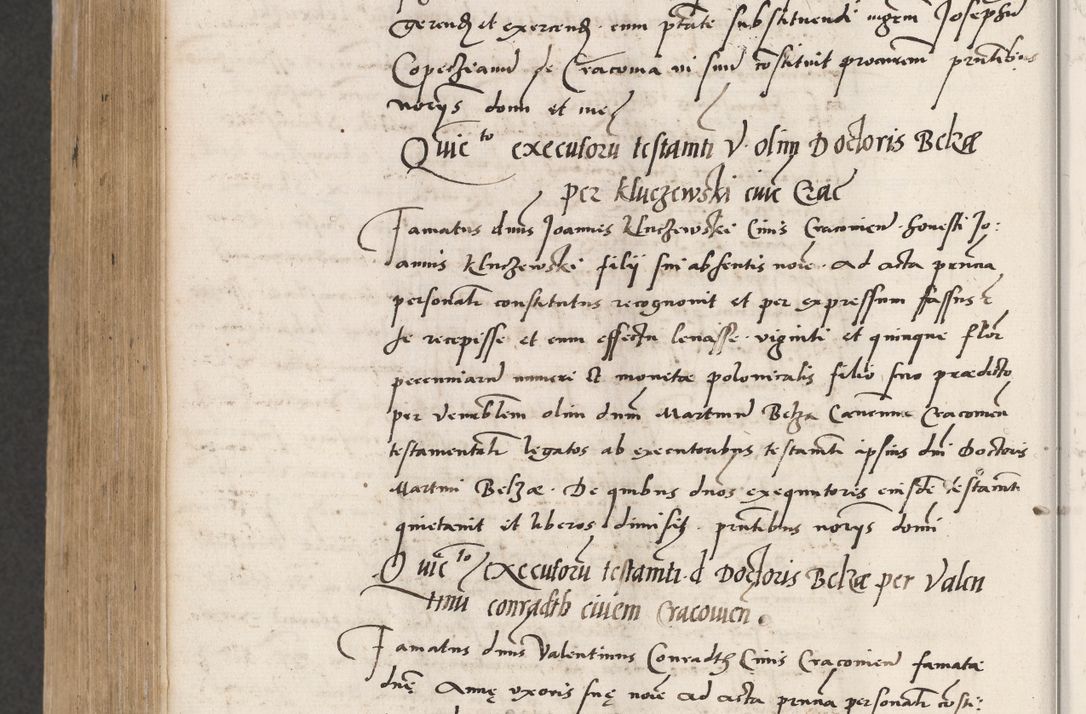 gerend et exercend cum ptate substituendi ingrm Josephu
Copecziamu de Cracovia vi sum constituit procurem prntibus
noriis domi et me
Quiecto executoru testamti V olim Doctoris Belzæ
per Kluczewski civē Crac
Famatus dnus Joannes Kluczewski Civis Cracovien honesti Jo:
annis Kluczewski filii sui absentis noie ad acta prntia
personalr constitutus recognovit et per expressum fassus ē
se recepisse et cum effectu levasse viginti et quinque flor
pecuniaru numeri et monetæ polonicalis filio suo prædicto
per Venerblem olim dnum Martinum Belza Canonicum Cracovien
testamentalr legatos ab executoribus testamti ipsius dni Doctoris
Martini Belzæ. De quibus dnos exequutores eiusde testamti
quietavit et liberos dimisit. prntibus noriis domi
Quiecto executoru testamti d Doctoris Belzæ per Valen
tinu conradtb civem Cracovien.
Famatus dnus Valentinus Conradth Civis Cracovien famatæ
dnę Annę uxoris suę noie ad acta prntia personalr consti: